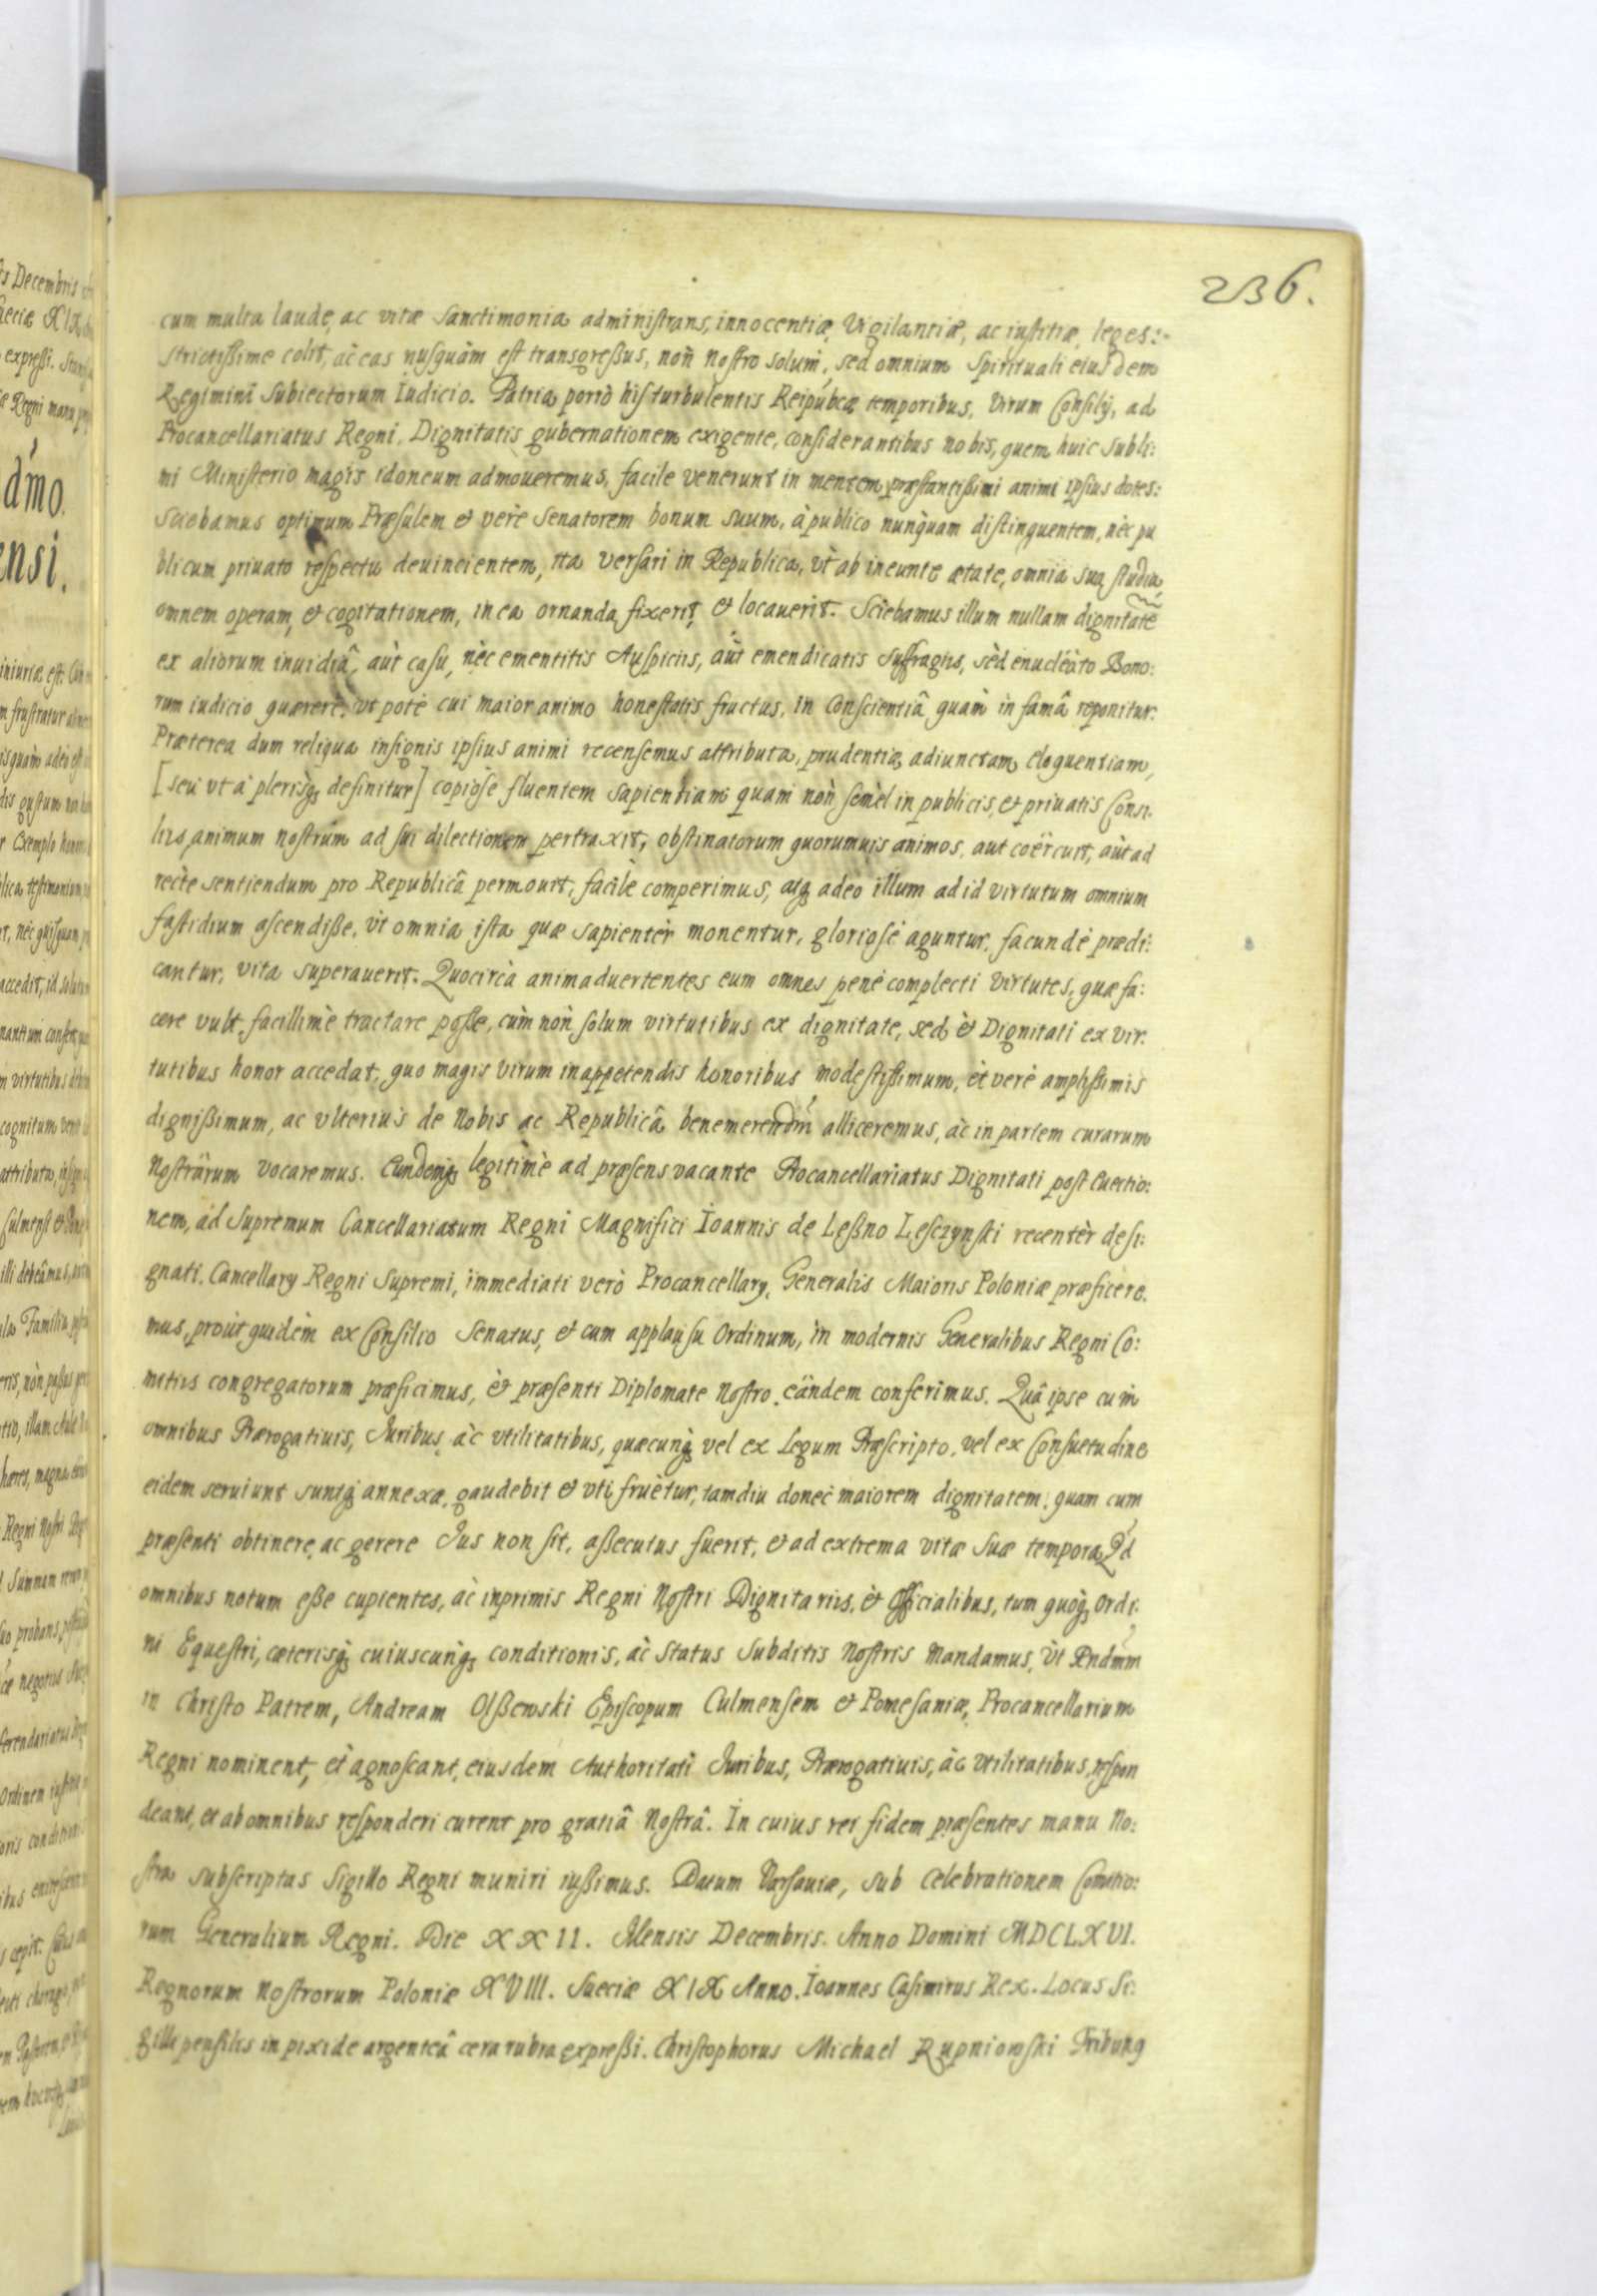 236.
cum multa laude, ac vitæ Sanctimonia administrans, innocentiæ, Vigilantiæ, ac iustitiæ, leges:
strictißime colit, ac eas nusquàm est transgreßus, non nostro solum, sed omnium Spirituali eiusdem
Regimini Subiectorum Iudicio. Patria porrò his turbulentis Reipubcæ temporibus, Virum Consilij, ad
Procancellariatus Regni, Dignitatis gubernationem exigente, considerantibus nobis, quem huic subli:
mi Ministerio magis idoneum admoueremus, facile venerunt in mentem præstantißimi animi ipsius dotes:
Sciebamus optimum Præsulem et verè Senatorem bonum suum, à publico nunquam distinguentem, nec pu
blicum priuato respectu deuincientem, ita versari in Republica, vt ab ineunte ætate, omnia sua studia,
omnem operam, et cogitationem, in ea ornanda fixerit, et locauerit. Sciebamus illum nullam dignitatē
ex aliorum inuidiâ, aùt casu, nèc ementitis Auspiciis, aùt emendicatis Suffragiis, sèd enucleàto Bono:
rum iudicio quærere, vt potè cui maior animo honestatis fructus, in Conscientiâ quàm in famâ reponitur.
Præterea dum reliqua insignis ipsius animi recensemus attributa, prudentiæ adiunctam eloquentiam,
[seu vt à plerisq definitur] copiose fluentem sapientiam quam non semèl in publicis, et priuatis Consi.
liis animum nostrum ad sui dilectionem pertraxit, obstinatorum quorumuis animos, aut coërcuit, aùt ad
rectè sentiendum pro Republicâ permouit, facilè comperimus, atq adeo illum ad id virtutum omnium
fastidium ascendiße, vt omnia ista quæ sapientèr monentur, gloriosè aguntur, facundè prædi:
cantur, vita superauerit. Quocircà animaduertentes eum omnes penè complecti virtutes, quæ fa:
cere vult, facillimè tractare poße, cùm non solum virtutibus ex dignitate, sed èt Dignitati ex vir:
tutibus honor accedat, quo magis virum in appetendis honoribus modestißimum, èt verè amplißimis
dignißimum, ac vlteriùs de Nobis ac Republicâ benemerendm̃ alliceremus, àc in partem curarum
Nostrârum vocaremus. Eundemq legitimè ad præsens vacante Procancellariatus Dignitati post Euectio:
nem, ad Supremum Cancellariatum Regni Magnifici Ioannis de Leßno Lesczynski recentèr desi:
gnati. Cancellary Regni Supremi, immediati verò Procancellary, Generalis Maioris Poloniæ præficere.
mus, proùt quidèm ex Consilio Senatus, et cum applausu Ordinum, in modernis Generalibus Regni Co:
mitiis congregatorum præficimus, èt præsenti Diplomate Nostro eandem conferimus. Quâ ipse cum
omnibus Prærogatiuis, Iuribus àc vtilitatibus, quæcunq vel ex Legum Præscripto, vel ex Consuetudine
eidem seruiunt suntq annexæ, gaudebit et vti fruètur, tamdiu donec maiorem dignitatem, quam cum
præsenti obtinere, ac gerere Jus non sit, aßecutus fuerit, et ad extrema vitæ suæ tempora, Qd
omnibus notum eße cupientes, àc inprimis Regni Nostri Dignitariis, èt Officialibus, tum quoq Ordi:
ni Equestri, cæterisq cuiuscunq conditionis, àc Status Subditis Nostris Mandamus, Vt Rndmm
in Christo Patrem, Andream Olßewski Episcopum Culmensem et Pomesaniæ, Procancellarium
Regni nominent, èt agnoscant, eiusdem Authoritati Juribus, Prærogatiuis, àc Vtilitatibus, respon
deant, et ab omnibus responderi curent pro gratiâ Nostrâ. In cuius rei fidem præsentes manu No:
stra subscriptas Sigillo Regni muniri iußimus. Datum Varsauiæ, sub Celebrationem Comitio:
rum Generalium Regni. Die XXII. Mensis Decembris. Anno Domini MDCLXVI.
Regnorum Nostrorum Poloniæ XVIII. Sueciæ XIX Anno. Ioannes Casimirus Rex. Locus Si:
gilli pensilis in pixide argenteâ cera rubra expreßi. Christophorus Michael Rupniowski Tribunq